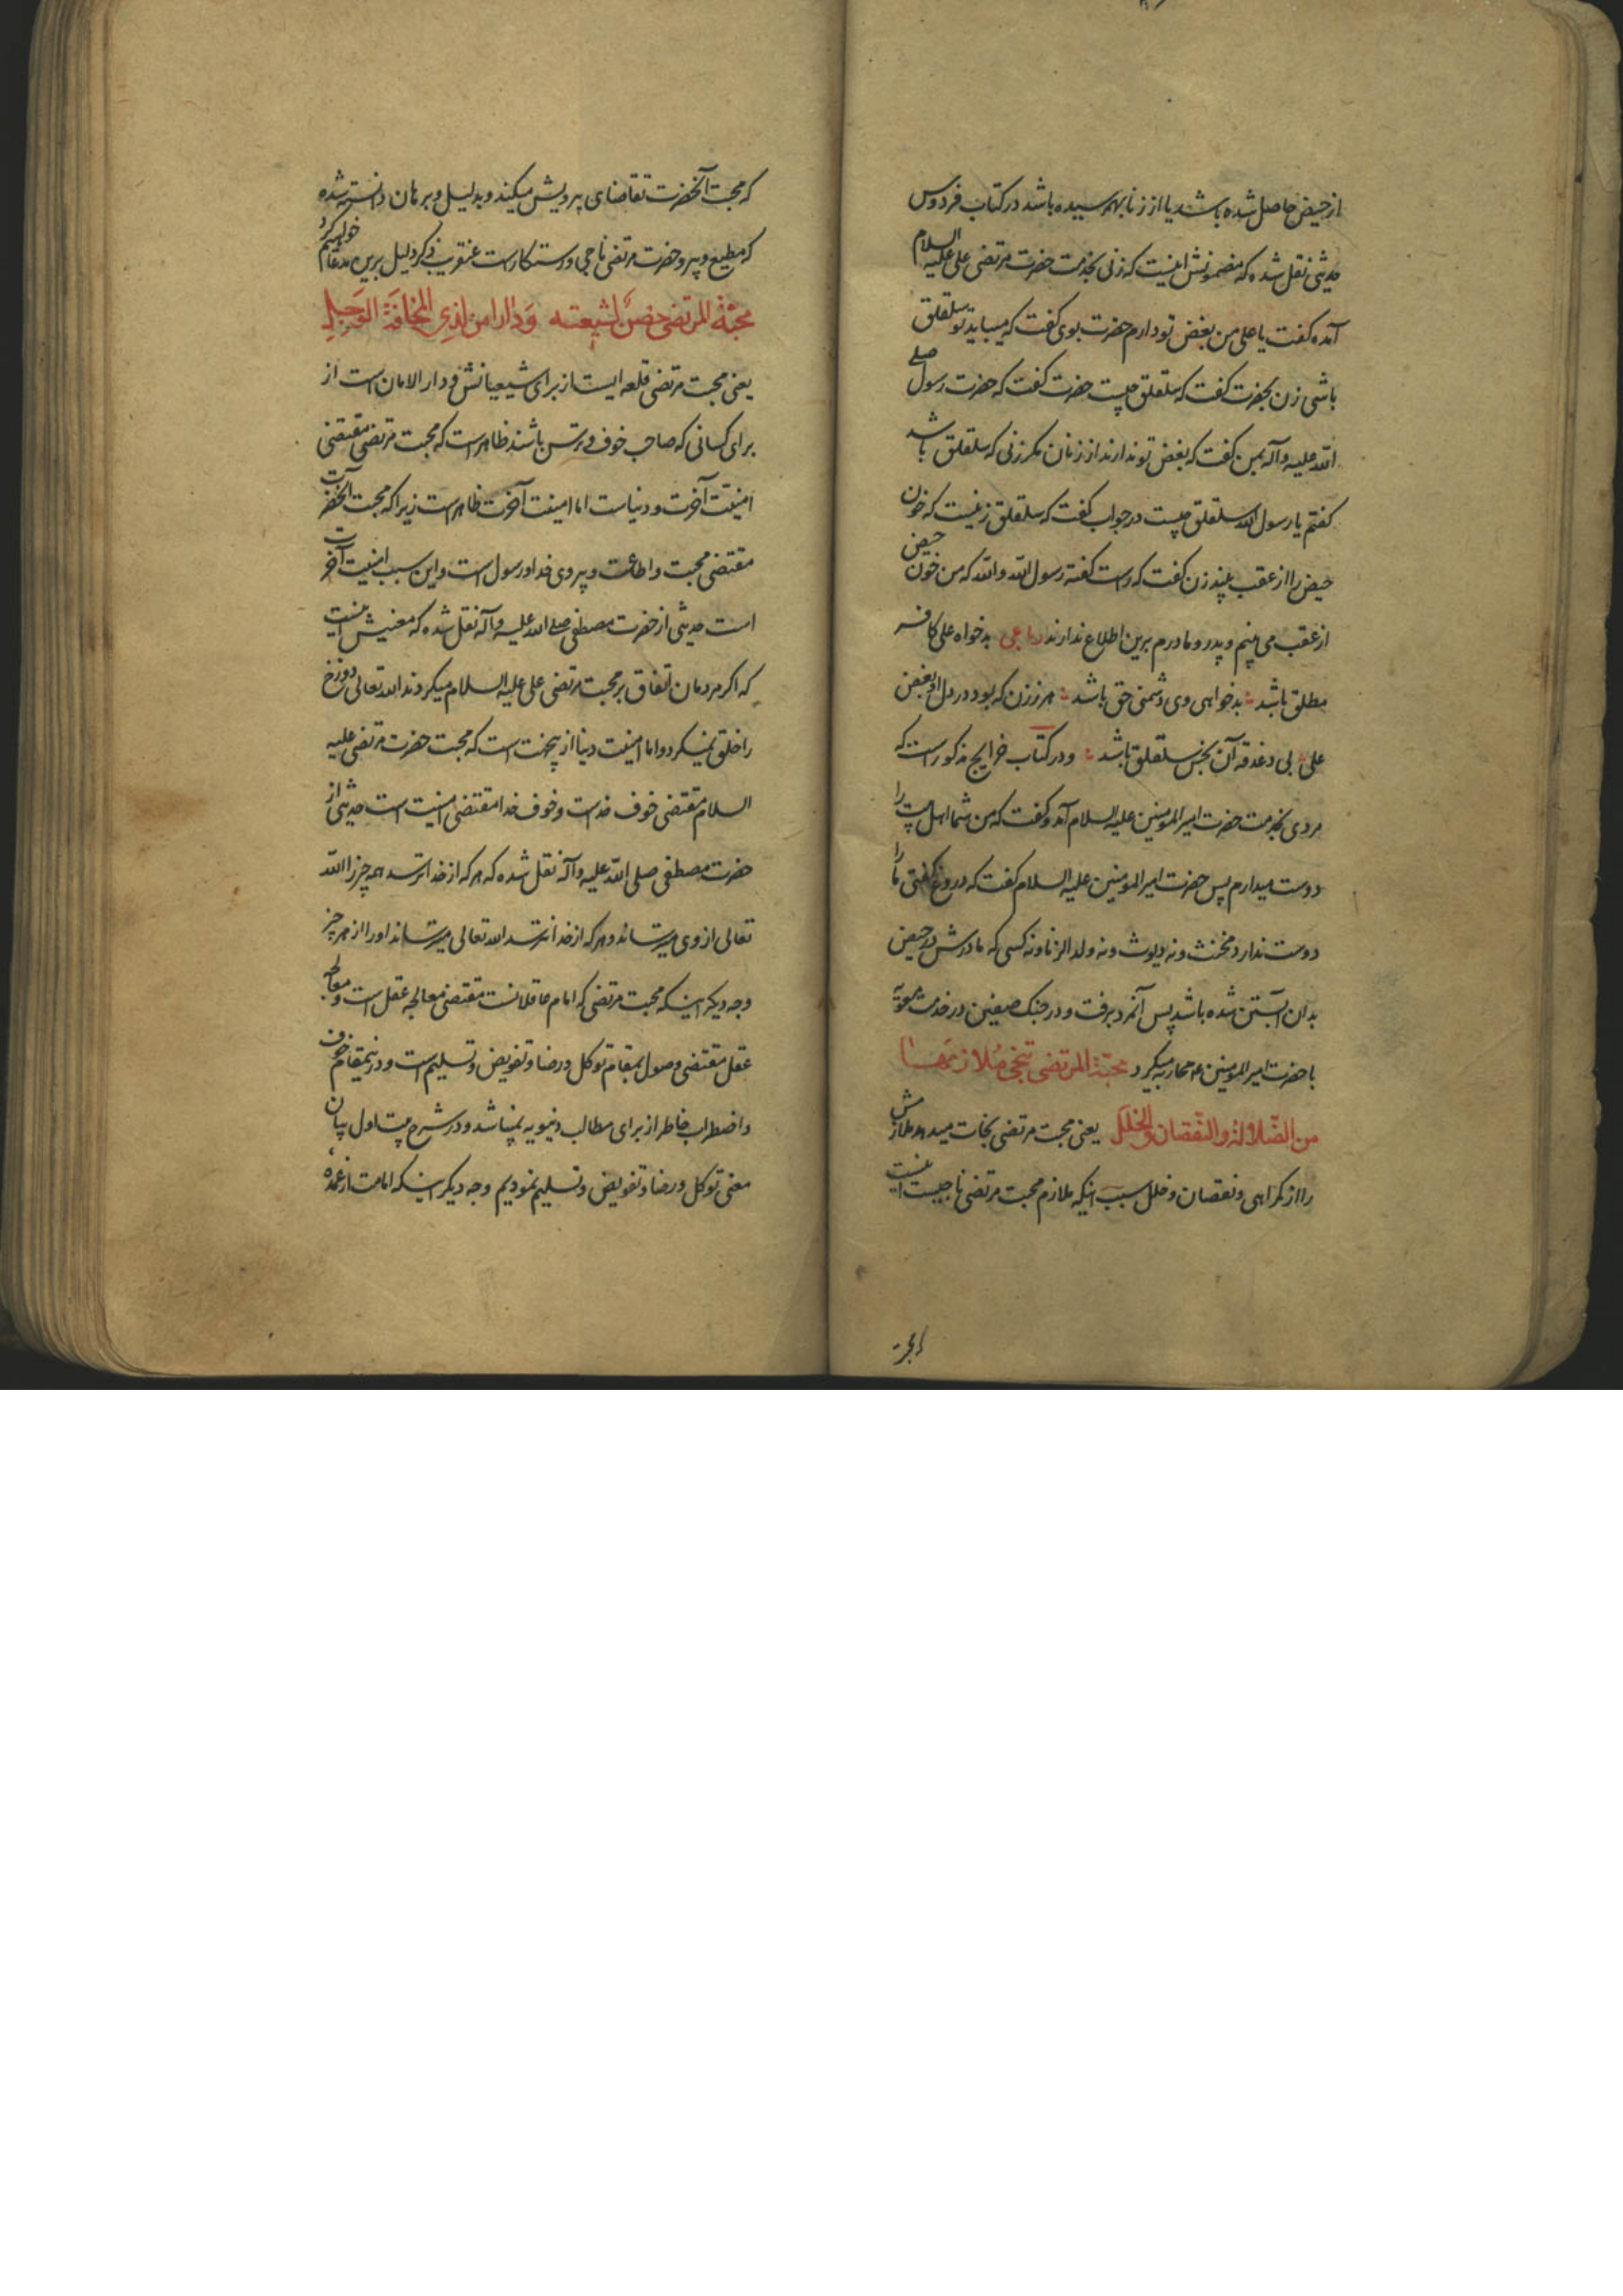 از حیض حاصل شده باشد یا از زنا بهمرسیده باشد در کتاب فردوس
حدیثی نقل شده که مضمونش اینست که زنی بخدمت حضرت مرتضی علی علیه السلام
آمده گفت یا علی من بغض تو دارم حضرت بوی گفت که میباید تو سلقلق
باشی زن بحضرت گفت که سلقلق چیست حضرت گفت که حضرت رسول صلی
الله علیه وآله بمن گفت که بغض تو ندارند از زنان مکر زنی که سلقلق باشد
کفتم یا رسول الله سلقلق چیست در جواب کفت که سلقلق زنیست که خون
حیض را از عقب بیند زن کفت که راست کفته رسول الله والله که من خون حیض
از عقب می بینم و پدر و مادرم برین اطلاع ندارند رباعی بدخواه علی کافر
مطلق باشد بدخواهی وی دشمنی حق باشد هر زن که بود در دل او بغض
علی بی دغدقه آن نجس سلقلق باشد و در کتاب خرایج مذکور است که
مردی بخدمت حضرت امیرالمومنین علیه السلام آمد و گفت که من شما اهل بیت را
دوست میدارم پس حضرت امیرالمومنین علیه السلام کفت که دروغ کفتی ما را
دوست ندارد مخنث و نه دیوث و نه ولد الزنا و نه کسی که مادرش در حیض
بدان آبستن شده باشد پس آنمرد برفت و در جنک صفین در خدمت معویه
با حضرت امیرالمومنین ع محاربه میکرد محبة المرتضی تنجی ملازمها
من الضلالة والنقصان والخلل یعنی محبت مرتضی نجات میدهد ملازمش
را از کمراهی و نقصان و خلل سبب انیکه ملازم محبت مرتضی ناجیست اینست
که محبت آنحضرت تقاضای پیرویش میکند و بدلیل و برهان دانسته شده
که مطیع و پیرو حضرت مرتضی ناجی و رستکار است عنقریب ذکر دلیل برین مدعا خواهیم کرد
محبة المرتضی حصن لشیعته ودار امن لذی المخافة الوجل
یعنی محبت مرتضی قلعه ایست از برای شیعیانش و دار الامان است از
برای کسانی که صاحب خوف و ترس باشند ظاهر است که محبت مرتضی مقتضی
امنیت آخرت و دنیاست اما امنیت آخرت ظاهر است زیرا که محبت آنحضرت
مقتضی محبت و اطاعت و پیروی خدا و رسول است و این سبب امنیت آخرت
است حدیثی از حضرت مصطفی صلی الله علیه وآله نقل شده که معنیش اینست
که اکر مردمان اتفاق بر محبت مرتضی علی علیه السلام میکردند الله تعالی دوزخ
را خلق نمیکرد و اما امنیت دنیا از پیجهت است که محبت حضرت مرتضی علیه
السلام مقتضی خوف خداست و خوف خدا مقتضی امنیت است حدیثی از
حضرت مصطفی صلی الله علیه وآله نقل شده که هر که از خدا ترسد همه چیز را الله
تعالی از وی میترساند و هر که از خدا نترسد الله تعالی میترساند او را از هر چیز
وجه دیکر اینکه محبت مرتضی که امام عاقلانست مقتضی معالجه عقل است و معالجه
عقل مقتضی وصول بمقام توکل و رضا و تفویض و تسلیم است و درینمقام خوف
و اضطراب خاطر از برای مطالب دنیویه نمیباشد و در شرح بیت اول بیان
معنی توکل و رضا و تفویض و تسلیم نمودیم وجه دیکر اینکه امامت از عمده